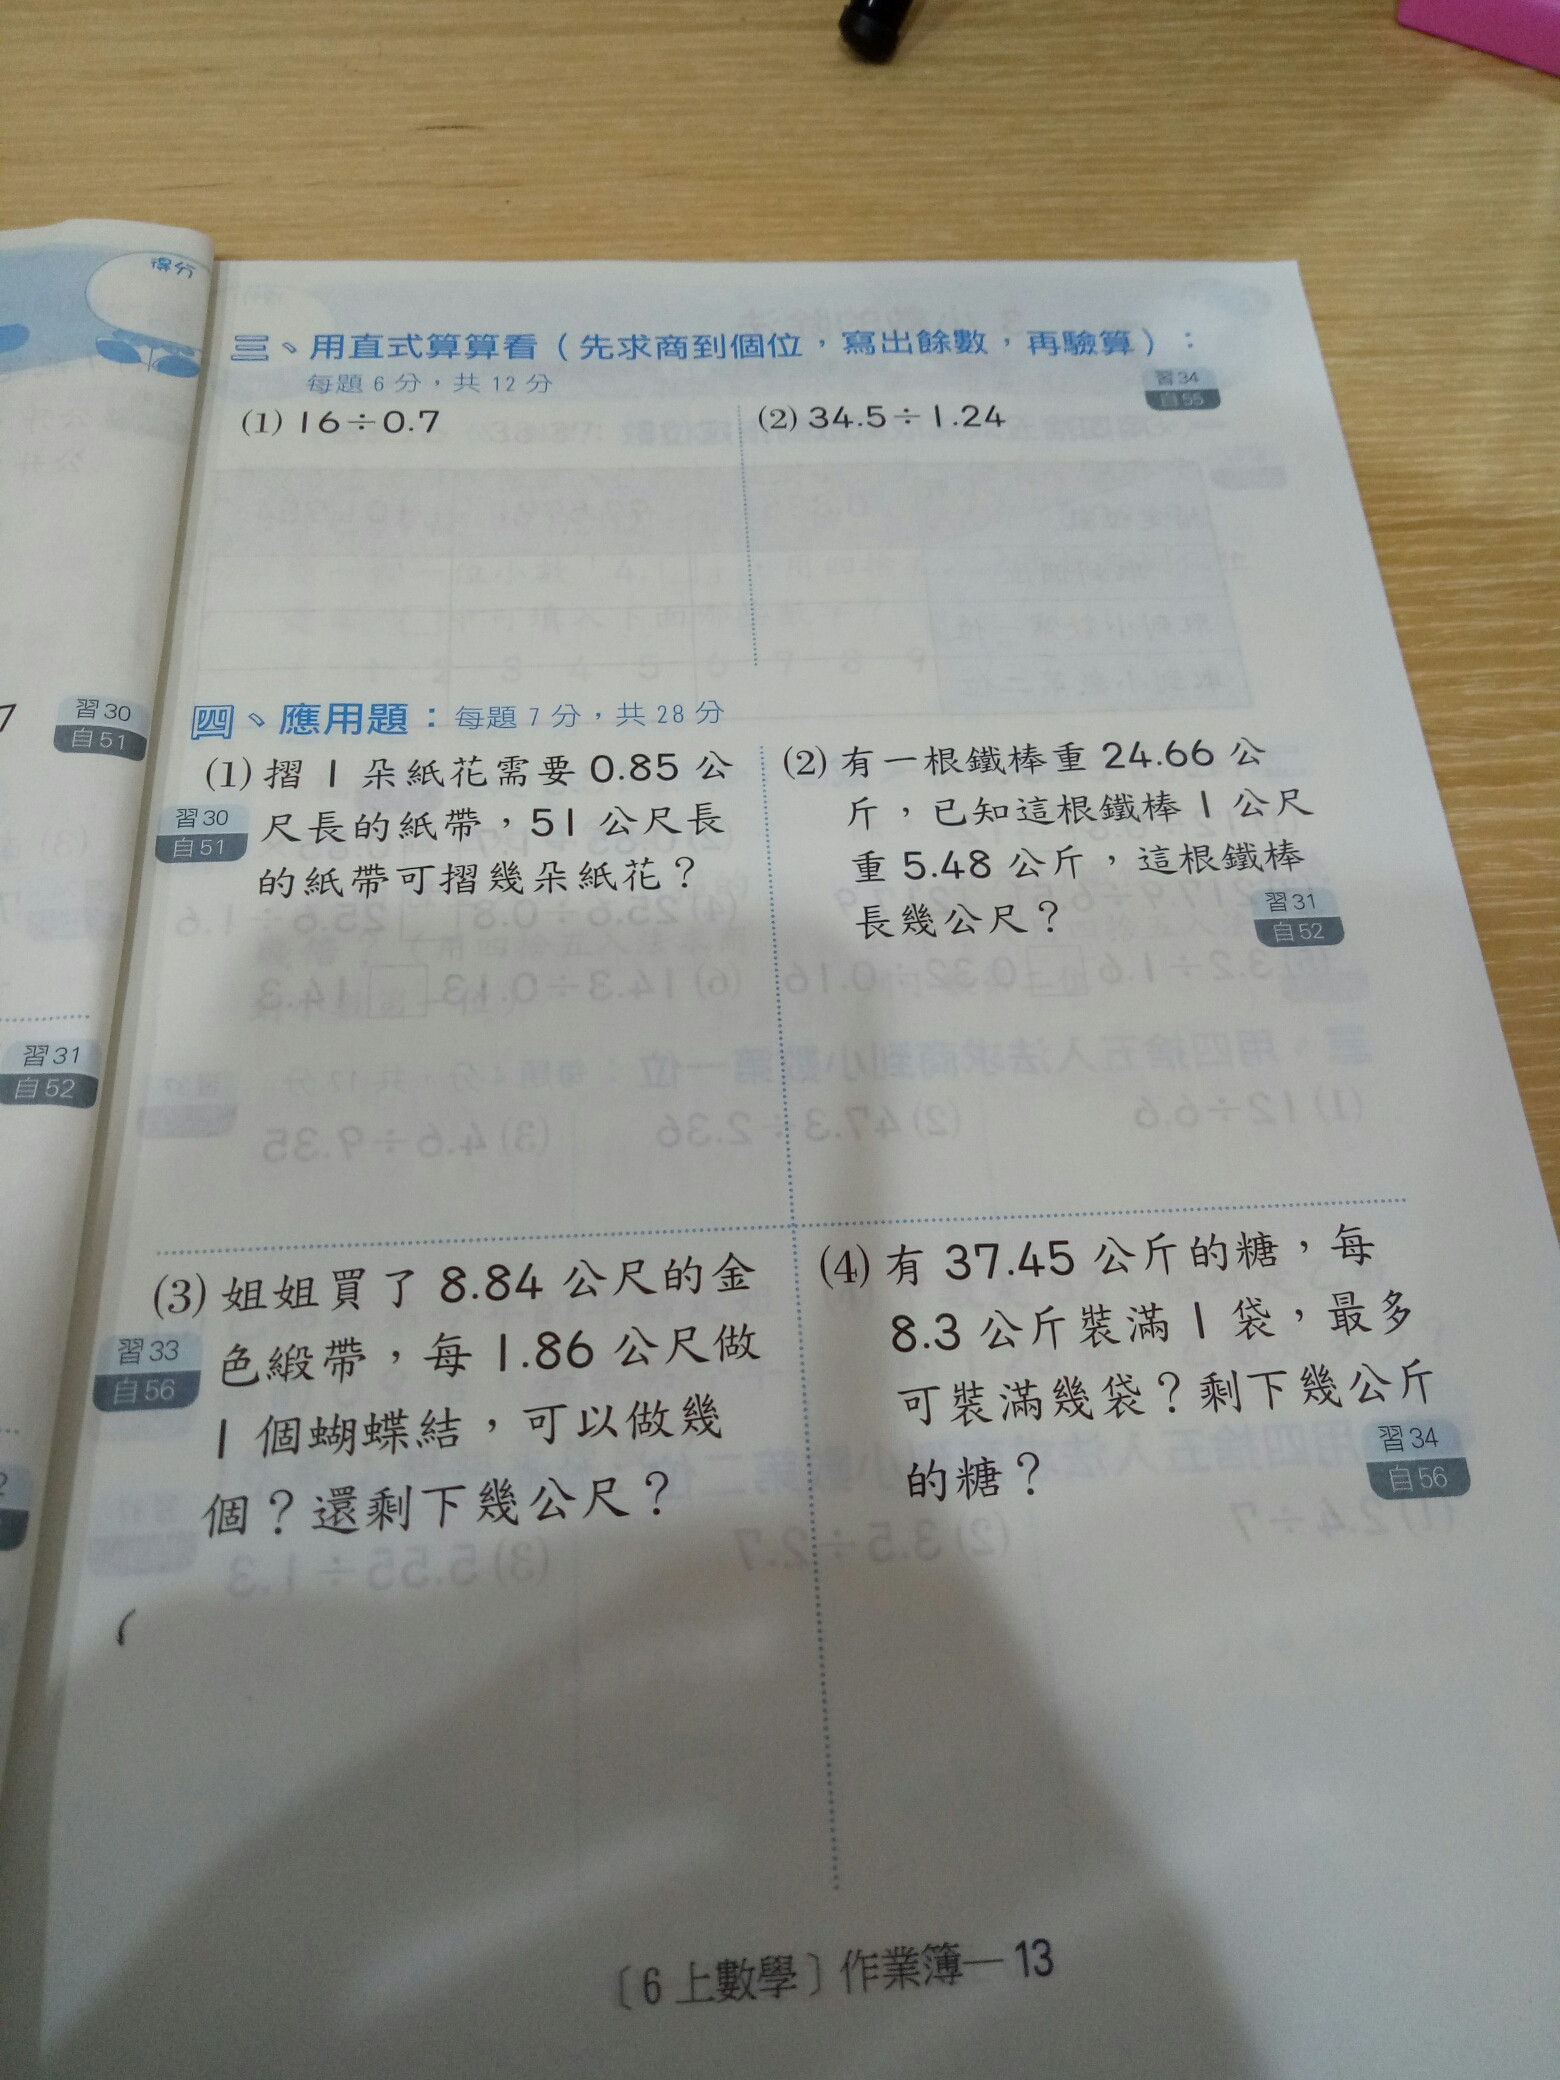 得分
三、用直式算算看（先求商到個位，寫出餘數，再驗算）：
每題 6 分，共 12 分
習34
自55
(1) 16÷0.7
(2) 34.5÷1.24
7
習30
自51
四、應用題：每題 7 分，共 28 分
(1) 摺 1 朵紙花需要 0.85 公
尺長的紙帶，51 公尺長
的紙帶可摺幾朵紙花？
習30
自51
(2) 有一根鐵棒重 24.66 公
斤，已知這根鐵棒 1 公尺
重 5.48 公斤，這根鐵棒
長幾公尺？
習31
自52
習31
自52
(3) 姐姐買了 8.84 公尺的金
色緞帶，每 1.86 公尺做
1 個蝴蝶結，可以做幾
個？還剩下幾公尺？
習33
自56
(4) 有 37.45 公斤的糖，每
8.3 公斤裝滿 1 袋，最多
可裝滿幾袋？剩下幾公斤
的糖？
習34
自56
2
〔6 上數學〕作業簿—13